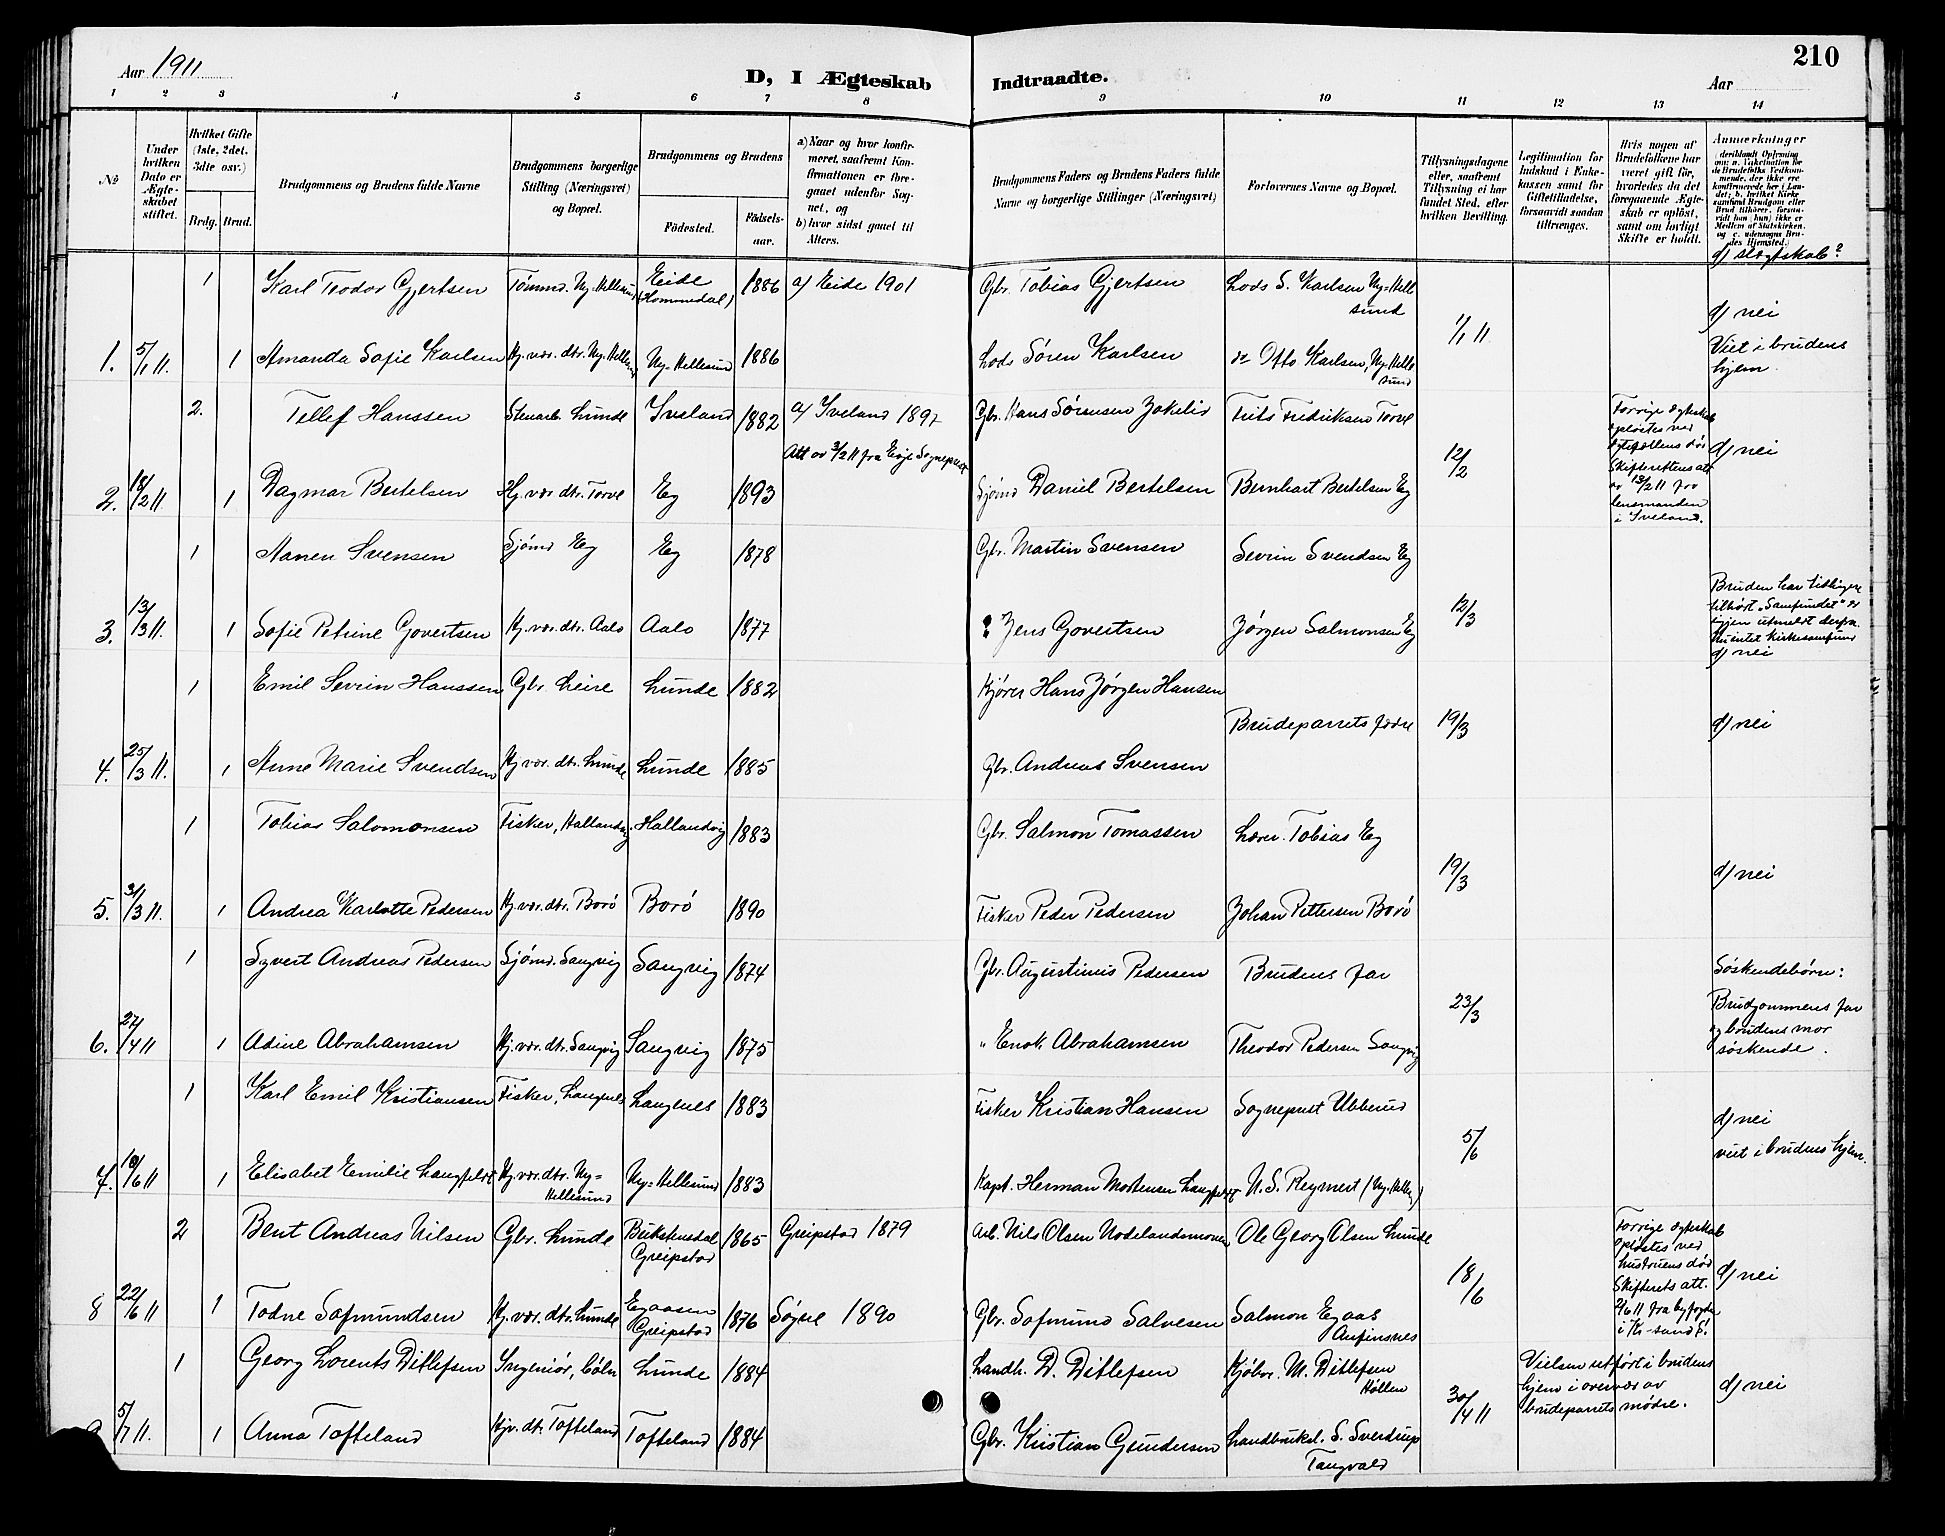 Aar 1911
D, I Ægteskab Indtraadte.
210
Aar
1 2 3 4 5 6 7 8 9 10 11 12 13 14
№
Under hvilken Dato er Ægteskabet stiftet.
Hvilket Gifte (1ste, 2det, 3die osv.)
Brdg. Brud.
Brudgommens og Brudens fulde Navne
Brudgommens borgerlige Stilling (Næringsvei) og Bopæl.
Brudgommens og Brudens
Fødested. Fødselsaar.
a) Naar og hvor konfirmeret, saafremt Konfirmationen er foregaaet udenfor Sognet, og
b) hvor sidst gaaet til Alters.
Brudgommens Faders og Brudens Faders fulde Navne og borgerlige Stillinger (Næringsvei)
Forlovernes Navne og Bopæl.
Tillysningsdagene eller, saafremt Tillysning ei har fundet Sted, efter hvilken Bevilling.
Legitimation for Indskud i Enkekassen samt for Giftetilladelse, forsaavidt saadan tiltrænges.
Hvis nogen af Brudefolkene har været gift før, hvorledes da det foregaaende Ægteskab er opløst, samt om lovligt Skifte er holdt.
Anmærkninger
d) slægtskab?
1 Karl Teodor Gjertsen Tømmd. Ny-Hellesund Eide (Hommedal) 1886 a) Eide 1901 Gbr. Tobias Gjertsen Lods S. Karlsen Ny-Hellesund
1/1 11 d) nei
1. 5/1 11. 1 Amanda Sofie Karlsen Hj. vær. dtr. Ny-Hellesund Ny-Hellesund 1886 Lods Søren Karlsen Otto Karlsen, Ny-Hellesund Viet i brudens hjem.
2. Tellef Hanssen Stenarb. Lunde Iveland 1882 a) Iveland 1897 Gbr. Hans Sørensen Frits Fredriksen Torve Forrige egteskab opløstes ved
Att av 3/2 11 fra Evje Sogneprest 12/2 d) nei
2. 18/2 11. 1 Dagmar Bertelsen Hj. vær. dtr. Torve Eg 1893 Sjømd Daniel Bertelsen Bernhart Bertelsen Eg Skifterettens att av 13/2 11 fra lensmanden i Iveland.
1 Nanen Svensen Sjømd Eg Eg 1878 Gbr. Martin Svensen Sevrin Svendsen Eg
12/3 Bruden har tidligere tilhørt "Samfundet"
3. 13/3 11. 1 Sofie Petrine Govertsen Hj. vær. dtr. Aalo Aalo 1877 Jens Govertsen Jørgen Salmonsen Eg
d) nei
1 Emil Sevrin Hanssen Gbr. Leire Lunde 1882 Kjører Hans Jørgen Hansen
Brudeparrets fædre 19/3 d) nei
4. 25/3 11. 1 Anne Marie Svendsen Hj. vær. dtr. Lunde Lunde 1885 Gbr. Andreas Svensen
1 Tobias Salomonsen Fisker, Hallandvig Hallandvig 1883 Gbr. Salmon Tomassen Lærer Tobias Eg
19/3 d) nei
5. 31/3 11. 1 Andrea Karlotte Pedersen Hj. vær. dtr. Borø Borø 1890 Fisker Peder Pedersen Johan Pettersen Borø
1 Syvert Andreas Pedersen Sjømd. Sangvig Sangvig 1874 Gbr. Augustinus Pedersen Brudens far Søskendebørn:
23/3 Brudgommens far og brudens mor søskende.
6. 27/4 11 1 Adine Abrahamsen Hj. vær. dtr. Sangvig Sangvig 1875 " Enok Abrahamsen Theodor Pedersen Sangvig
1 Karl Emil Kristiansen Fisker, Langenes Langenes 1883 Fisker Kristian Hansen Sogneprest Ubberud
5/6 d) nei viet i brudens hjem.
7. 10/6 11 1 Elisabet Emilie Langfeldt Hj. vær. dtr. Ny-Hellesund Ny-Hellesund 1883 Kapt. Herman Mortensen Langfeldt N. S. Reymert (Ny-Helles)
2 Bent Andreas Nilsen Gbr. Lunde Bukstensdal Greipstad 1865 Greipstad 1879 Arb. Nils Olsen Nodelandsmoen Ole Georg Olsen Lunde Forrige egteskab opløstes ved hustruens død
18/6 d) nei
8 22/6 11 1 Todne Sofmundsen Hj. vær. dtr. Lunde Egaasen Greipstad 1876 Søgne 1890 Gbr. Sofmund Salvesen Salmon Egaas Aufinsnes Skifterets att. 2/6 11 fra byfogden i Kr-sand S.
1 Georg Lorents Ditlefsen Ingeniør, Cöln Lunde 1884 Landh. D. Ditlefsen Kjøbm. M. Ditlefsen Høllen Vielsen utført i brudens hjem i overvær av brudeparrets mødre.
30/4 11 d) nei
5/7 11. 1 Anna Tofteland Hjv. dt. Tofteland Tofteland 1884 Gbr. Kristian Gundersen Landbruksl. S. Sverdrup Tangvald